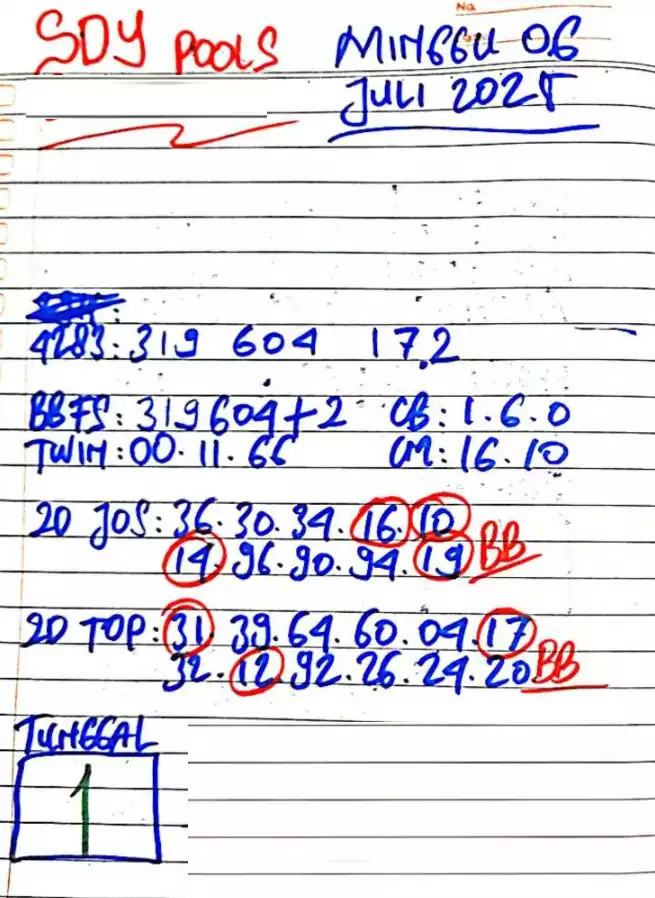 No
SDY POOLS MINGGU 06
JULI 2025
4283: 319 604 17.2
BBFS: 319604+2 CB: 1.6.0
TWIN: 00.11.66 CM: 16.10
2D JOS: 36.30.34.16.10
14.96.90.94.19 BB
2D TOP: 31.39.64.60.04.17
32.12.92.26.24.20 BB
TUNGGAL
1